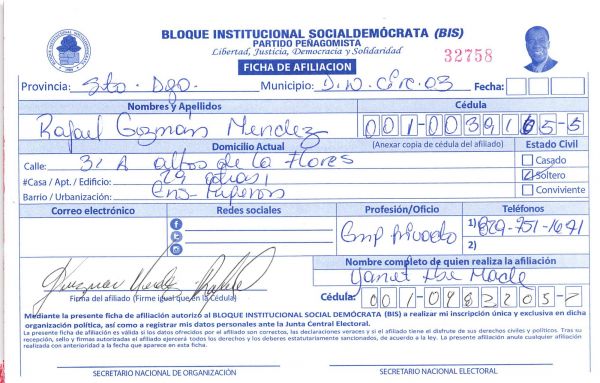 BLOQUE INSTITUCIONAL SOCIALDEMÓCRATA (BIS)
PARTIDO PEÑAGOMISTA
Libertad, Justicia, Democracia y Solidaridad
32758
FICHA DE AFILIACION
Provincia: Sto. Dgo. Municipio: D.N. Circ. 03 Fecha:
Nombres y Apellidos Cédula
Rafael Guzmán Mendez 001-0039165-5
Domicilio Actual (Anexar copia de cédula del afiliado) Estado Civil
Calle: 31 A altos de la Flores Casado
#Casa / Apt. / Edificio: 29 atras Soltero
Barrio / Urbanización: Conviviente
Correo electrónico Redes sociales Profesión/Oficio Teléfonos
Emp Privado 1) 829-751-1641
2)
Nombre completo de quien realiza la afiliación
Yanet
Firma del afiliado (Firme igual que en la Cédula) Cédula: 001-0482205-2
Mediante la presente ficha de afiliación autorizó al BLOQUE INSTITUCIONAL SOCIAL DEMÓCRATA (BIS) a realizar mi inscripción única y exclusiva en dicha
organización política, así como a registrar mis datos personales ante la Junta Central Electoral.
La presente ficha de afiliación es válida si los datos ofrecidos por el afiliado son correctos, las declaraciones veraces y si el afiliado tiene el disfrute de sus derechos civiles y políticos. Tras su
recepción, sello y firmas autorizadas el afiliado ejercerá todos los derechos y los deberes estatutariamente sancionados, de acuerdo a la ley. La presente afiliación anula cualquier afiliación
realizada con anterioridad a la fecha que aparece en esta ficha.
SECRETARIO NACIONAL DE ORGANIZACIÓN SECRETARIO NACIONAL ELECTORAL